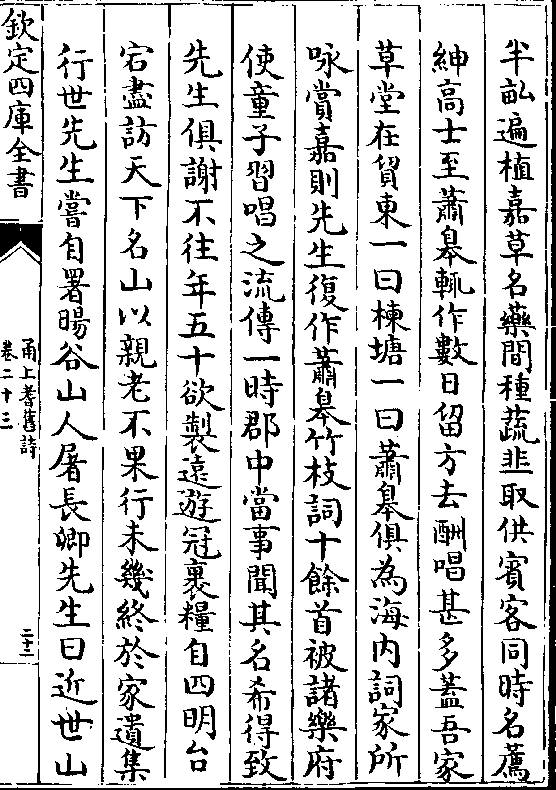 半畝遍植嘉草名藥間種蔬韭取供賓客同時名薦
紳高士至蕭皋輒作數日留方去酬唱甚多蓋吾家
草堂在貿東一曰楝塘一曰蕭皋俱為海内詞家所
咏賞嘉則先生復作蕭皋竹枝詞十餘首被諸樂府
使童子習唱之流傳一時郡中當事聞其名希得致
先生俱謝不往年五十欲製遠遊冠裹糧自四明台
宕盡訪天下名山以親老不果行未幾終於家遺集
行世先生嘗自署暘谷山人屠長卿先生曰近世山
欽定四庫全書
甬上耆舊詩
卷二十三
二十二